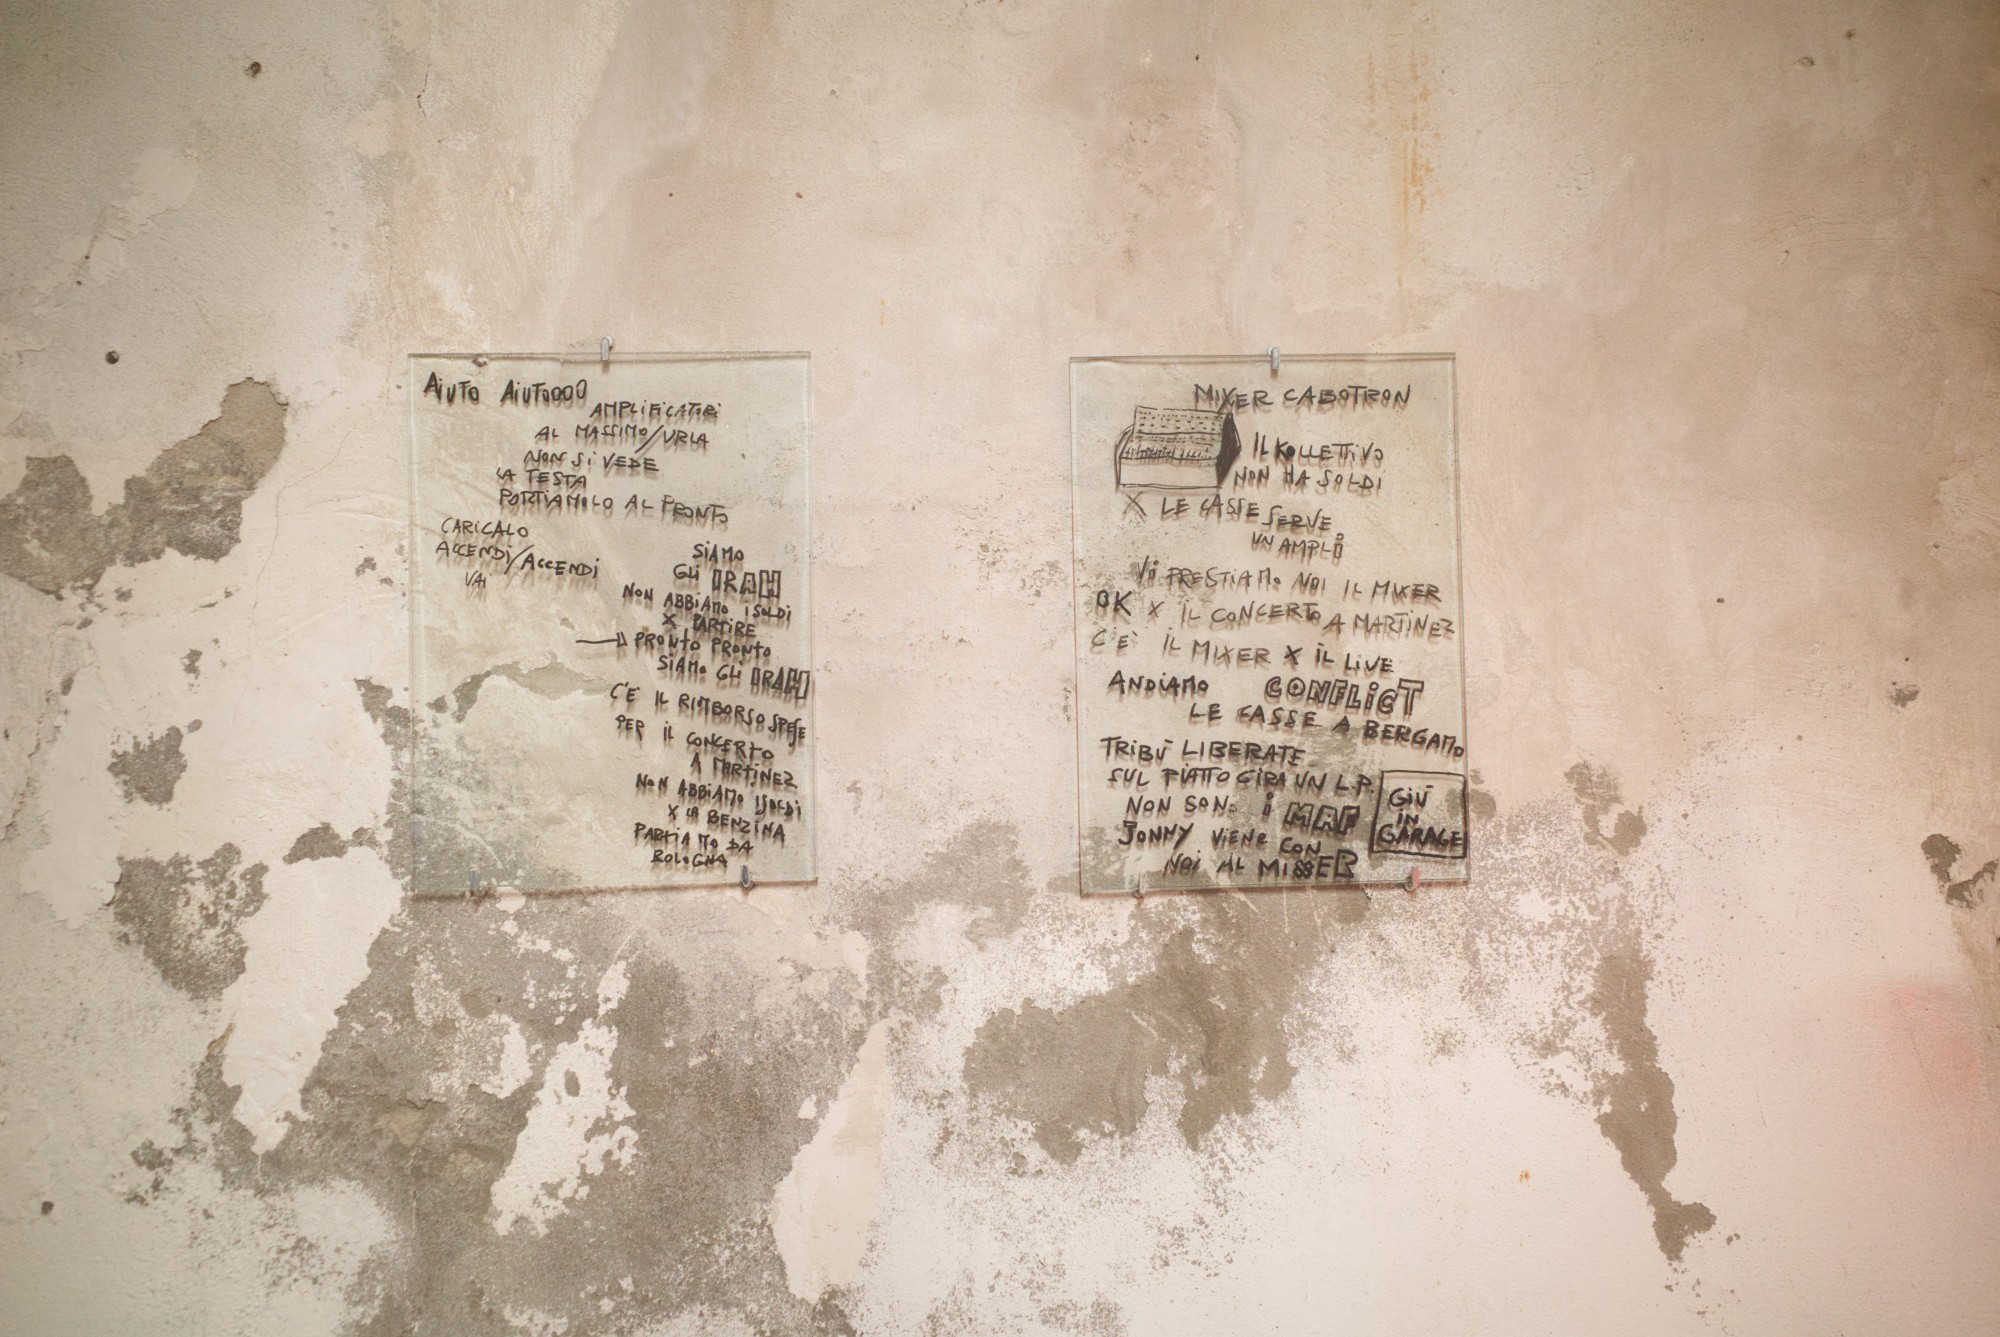 AIUTO AIUTOOOO
AMPLIFICATORI
AL MASSIMO/URLA
NON SI VEDE
LA TESTA
PORTIAMOLO AL FRONTO
CARICALO
ACCENDI/ACCENDI
VAI
SIAMO
GLI IRAH
NON ABBIAMO I SOLDI
X PARTIRE
PRONTO PRONTO
SIAMO GLI IRAH
C'È IL RIMBORSO SPESE
PER IL CONCERTO
A MARTINEZ
NON ABBIAMO I SOLDI
X LA BENZINA
PARTIAMO DA
BOLOGNA
MIXER CABOTRON
IL KOLLETTIVO
NON HA SOLDI
X LE CASSE SERVE
UN AMPLI
VI PRESTIAMO NOI IL MIXER
OK X IL CONCERTO A MARTINEZ
C'E' IL MIXER X IL LIVE
ANDIAMO CONFLICT
LE CASSE A BERGAMO
TRIBÙ LIBERATE
SUL PIATTO GIRA UN L.P.
NON SONO I MAF
JONNY VIENE CON
NOI AL MISSER
GIÙ
IN
GARAGE